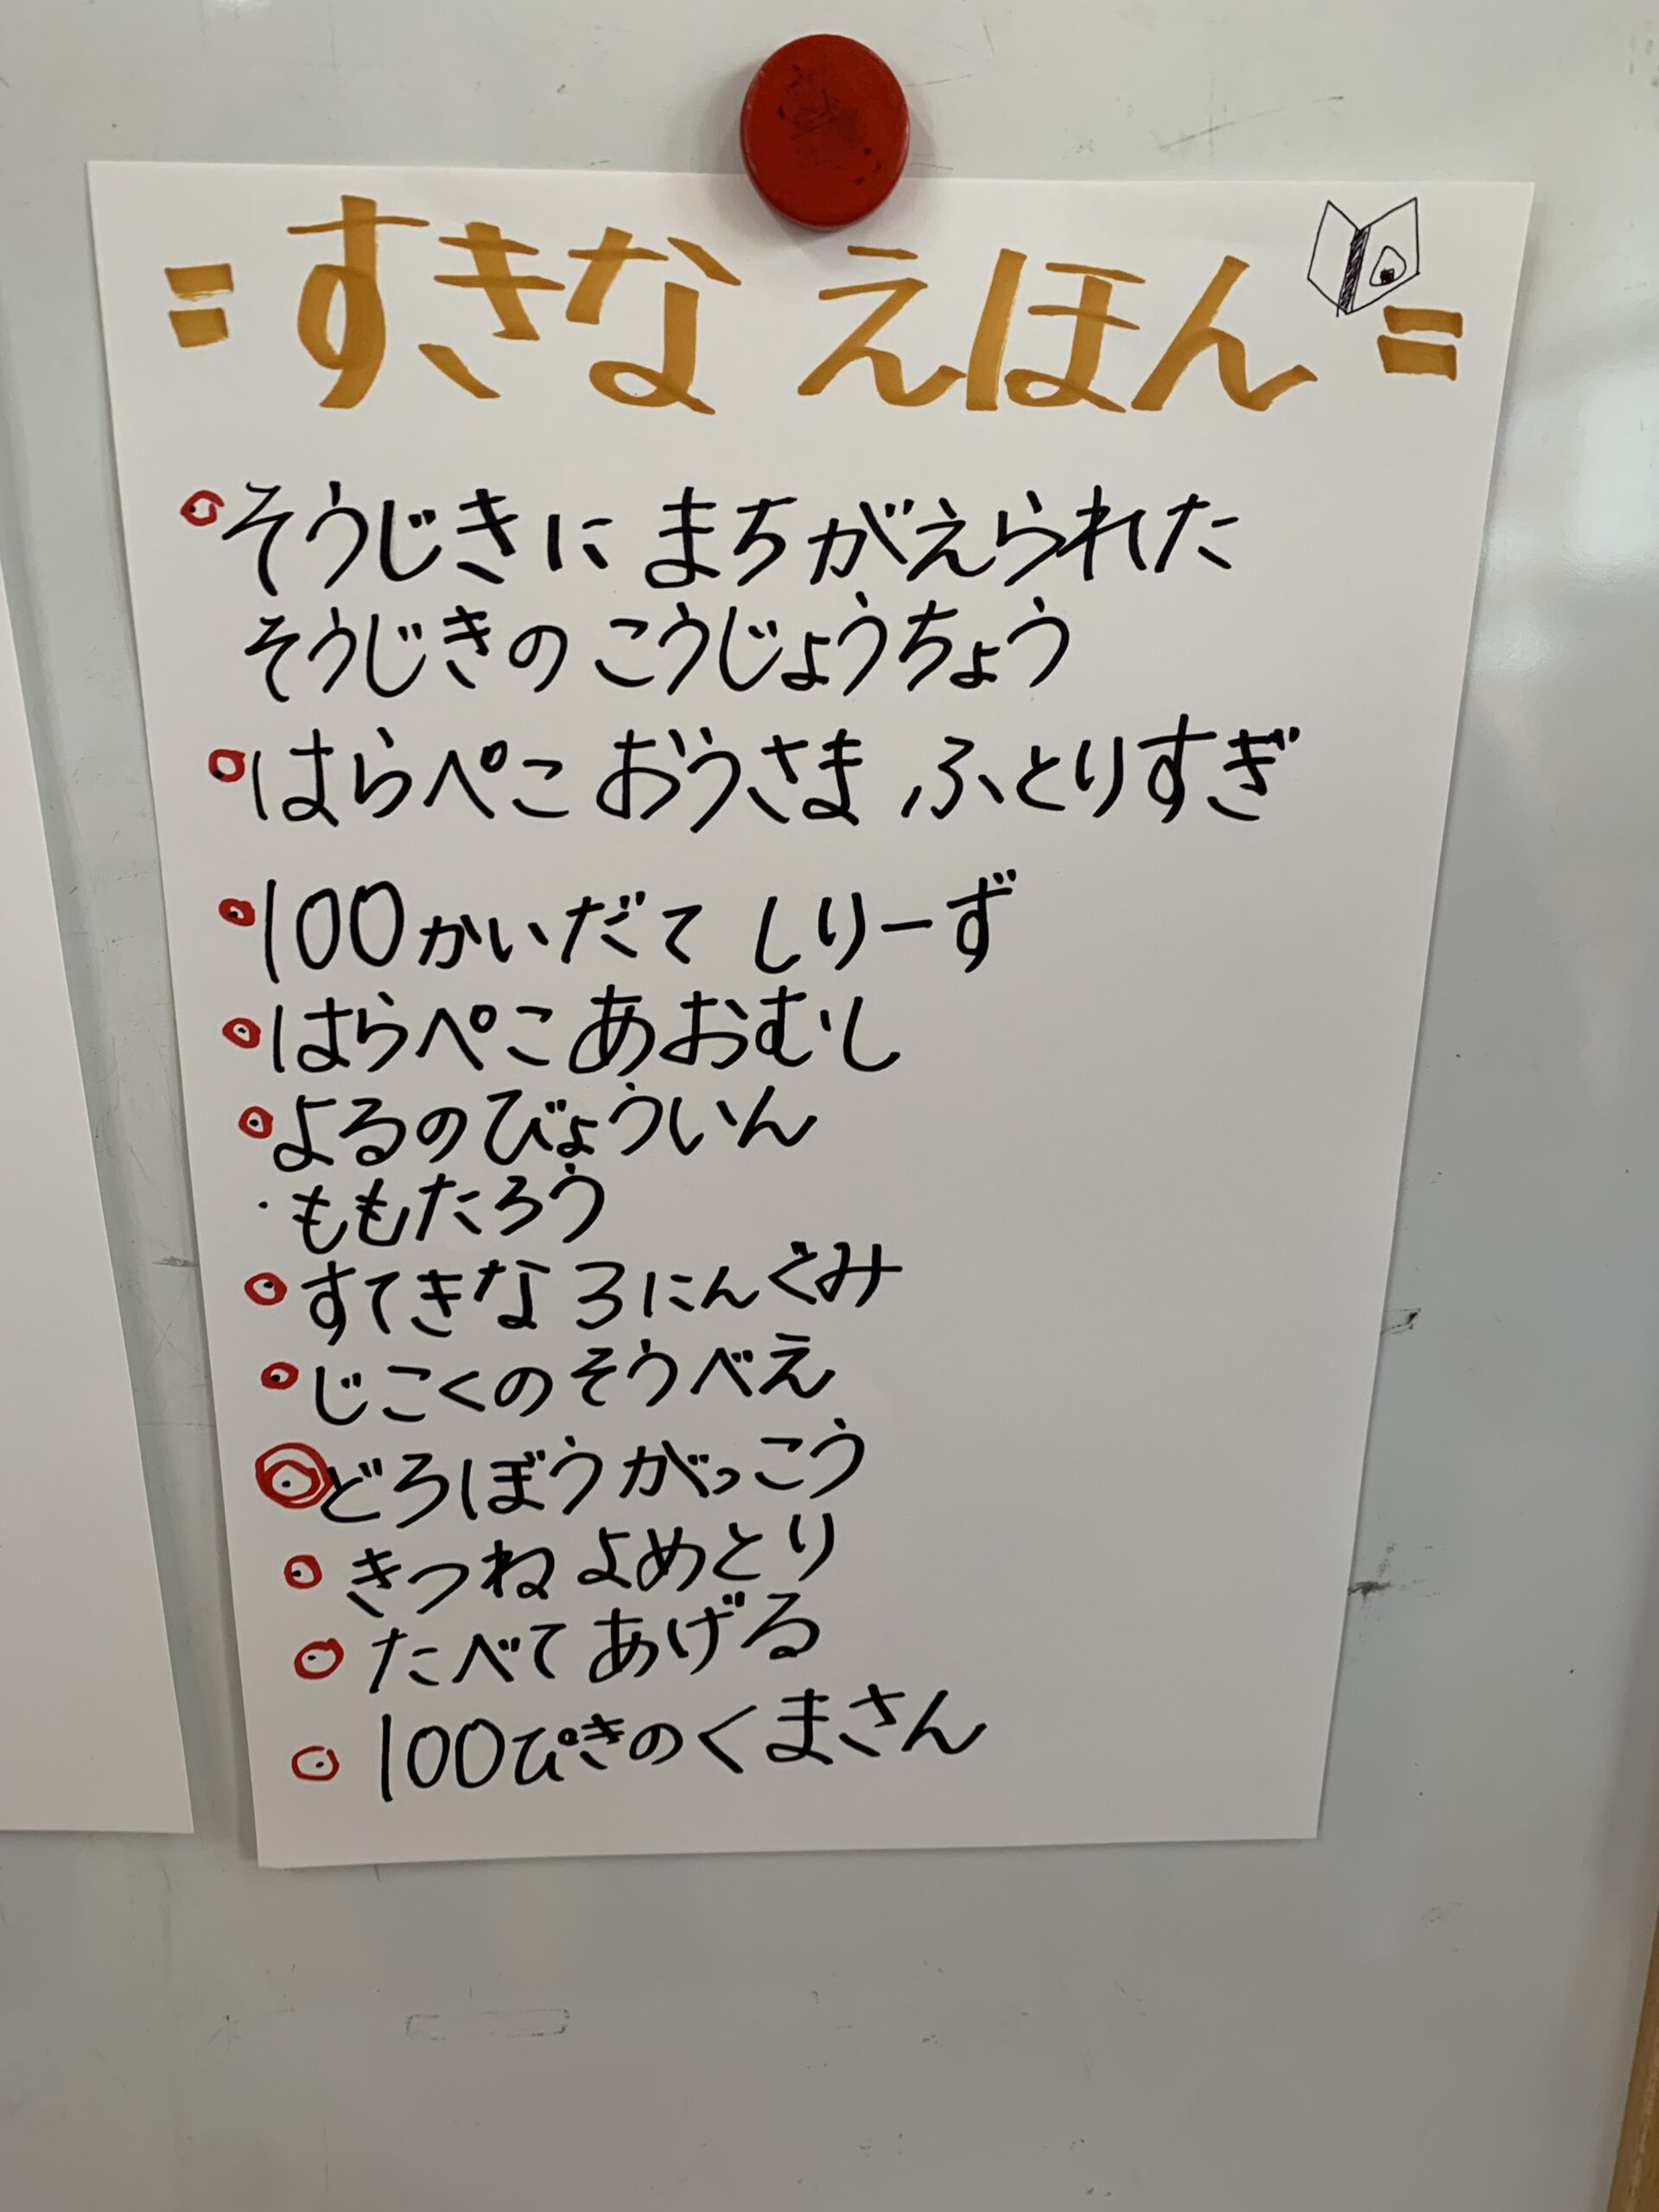 = すきな えほん =
・そうじきに まちがえられた
そうじきの こうじょうちょう
・はらぺこ おうさま ふとりすぎ
・100かいだて しりーず
・はらぺこ あおむし
・よるのびょういん
・ももたろう
・すてきな 3にんぐみ
・じごくのそうべえ
・どろぼうがっこう
・きつね よめとり
・たべて あげる
・100ぴきのくまさん